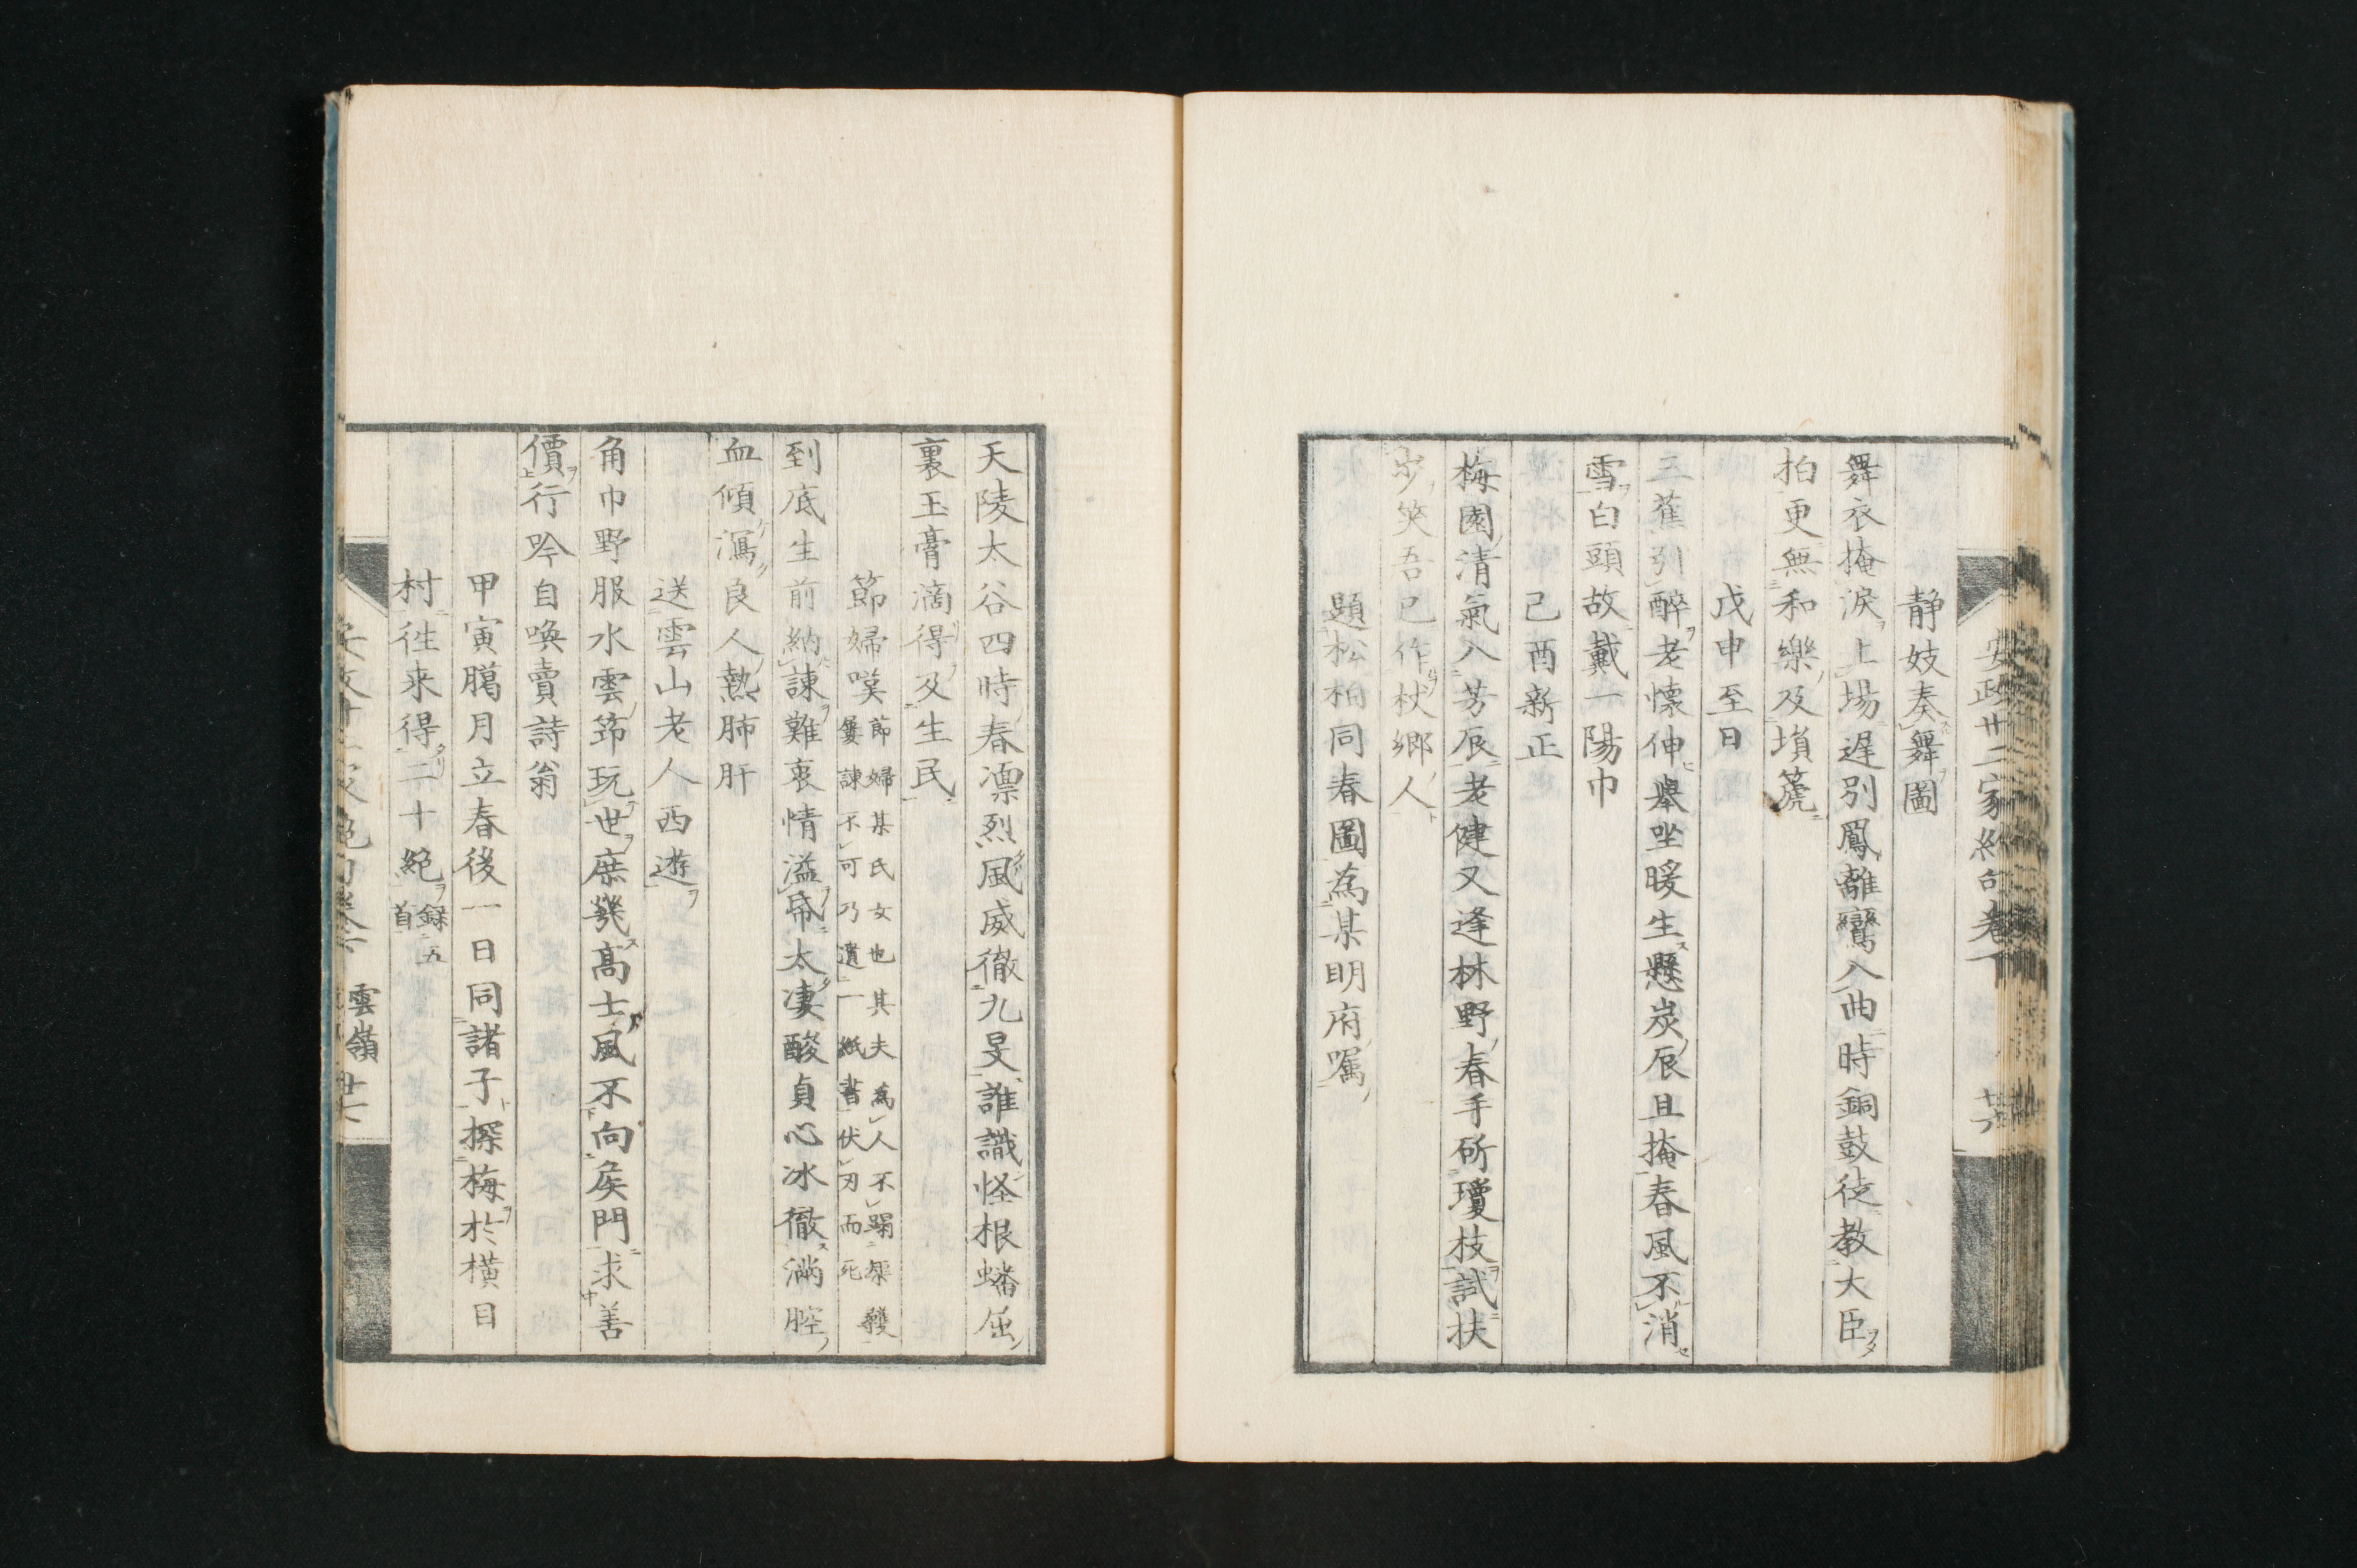 安政廿二家絶句巻下
静妓奏舞圖
舞衣掩淚上場遅別鳳離鸞入曲時銅鼓徒教大臣
拍更無和樂及塤篪
戊申至日
三蕉引醉老懷伸擧坐暖生懸炭辰且掩春風不消
雪白頭故戴一陽巾
己酉新正
梅園清氣入芳辰老健又逢林野春手斫瓊枝試扶
歩笑吾已作杖郷人
題松柏同春圖為某明府囑
天陵太谷四時春凛烈風威徹九旻誰識怪根蟠屈
裏玉膏滴得及生民
節婦嘆 節婦某氏女也其夫為人不羈無雙
屢諌不可乃遺一紙書伏刃而死
到底生前納諌難衷情溢帋太凄酸貞心冰徹満腔
血傾瀉良人熱肺肝
送雲山老人西遊
角巾野服水雲筇玩世庶幾髙士風不向矦門求善
價行吟自喚賣詩翁
甲寅臈月立春後一日同諸子探梅於横目
村徃来得二十絶 録五
首
雲嶺